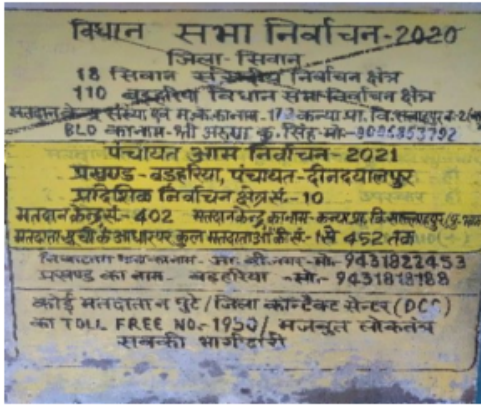 विधान सभा निर्वाचन-2020
जिला-सिवान
18 सिवान निर्वाचन क्षेत्र
110 बड़हरिया विधान सभा निर्वाचन क्षेत्र
मतदान केन्द्र संख्या एवं म.के.का नाम- कन्या प्रा. वि.
BLO का नाम-श्री अरुण कु. सिंह मो-
पंचायत आम निर्वाचन-2021
प्रखण्ड-बड़हरिया, पंचायत-दीनदयालपुर
प्रादेशिक निर्वाचन क्षेत्र सं.-10
मतदान केन्द्र सं.-402 मतदान केन्द्र का नाम-कन्या प्रा. वि.
मतदाता सूची के आधार पर कुल मतदाताओं की सं.-1 से 452 तक
का नाम- मो.-9431822453
प्रखण्ड का नाम- बड़हरिया -मो.-9431818188
कोई मतदाता न छुटे/जिला कान्टैक्ट सेन्टर (DCC)
का TOLL FREE NO.-1950/ मजबुत लोकतंत्र
सबकी भागीदारी